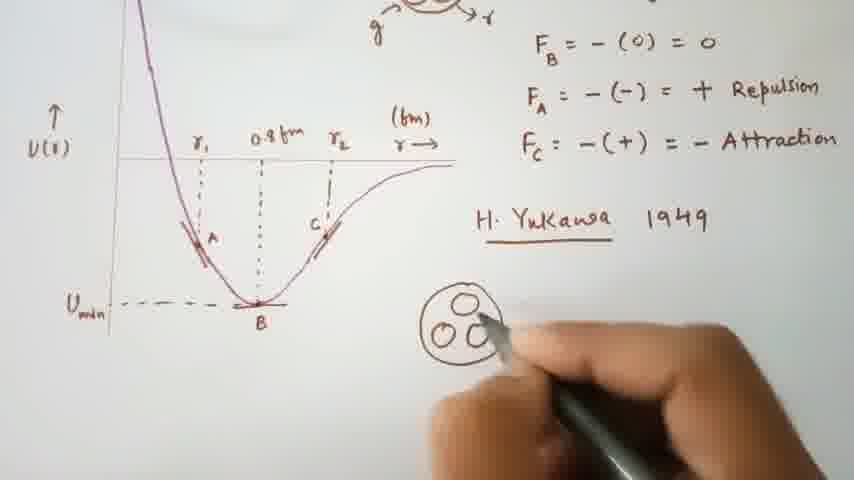 g
r
F_B = - (0) = 0
F_A = - (-) = + Repulsion
F_C = - (+) = - Attraction
U(r)
r₁
0.8 fm
r₂
(fm)
r →
A
C
B
U_min
H. Yukawa 1949